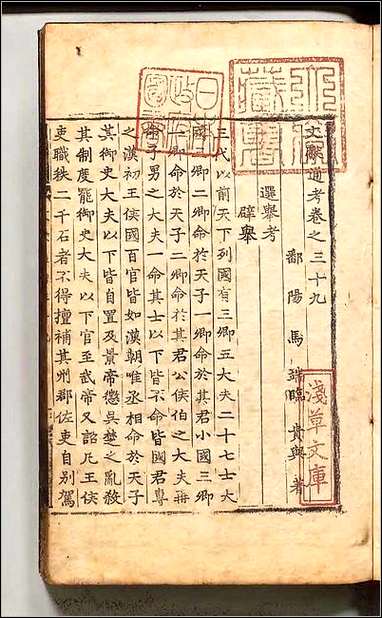 文獻通考卷之三十九
鄱陽馬端臨貴與著
選舉考
辟舉
三代以前天下列國有三卿五大夫二十七士大
國三卿二卿命於天子一卿命於其君小國三卿
一卿命於天子二卿命於其君公侯伯之大夫再
命子男之大夫一命其士以下皆不命皆國君專
之漢初王侯國百官皆如漢朝唯丞相命於天子
其御史大夫以下皆自置及景帝懲吳楚之亂殺
其制度罷御史大夫以下官至武帝又詔凡王侯
吏職秩二千石者不得擅補其州郡佐吏自別駕
淺草文庫
日本
政府
圖書